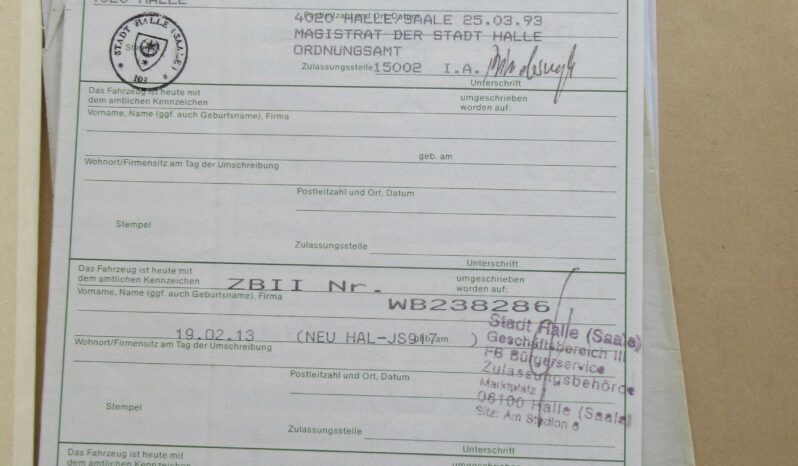 4020 HALLE
Postleitzahl und Ort, Datum
4020 HALLE/SAALE 25.03.93
MAGISTRAT DER STADT HALLE
ORDNUNGSAMT
STADT HALLE (SAALE)
103
Zulassungsstelle 15002 I.A.
Unterschrift
Das Fahrzeug ist heute mit
dem amtlichen Kennzeichen
umgeschrieben
worden auf:
Vorname, Name (ggf. auch Geburtsname), Firma
geb. am
Wohnort/Firmensitz am Tag der Umschreibung
Postleitzahl und Ort, Datum
Stempel
Zulassungsstelle
Unterschrift
Das Fahrzeug ist heute mit
dem amtlichen Kennzeichen
ZBII Nr.
umgeschrieben
worden auf:
Vorname, Name (ggf. auch Geburtsname), Firma
WB238286
19.02.13 (NEU HAL-JS917 )
geb. am
Wohnort/Firmensitz am Tag der Umschreibung
Stadt Halle (Saale)
Geschäftsbereich III
FB Bürgerservice
Zulassungsbehörde
Marktplatz
06100 Halle (Saale)
Sitz: Am Stadion 6
Postleitzahl und Ort, Datum
Stempel
Zulassungsstelle
Unterschrift
Das Fahrzeug ist heute mit
dem amtlichen Kennzeichen
umgeschrieben